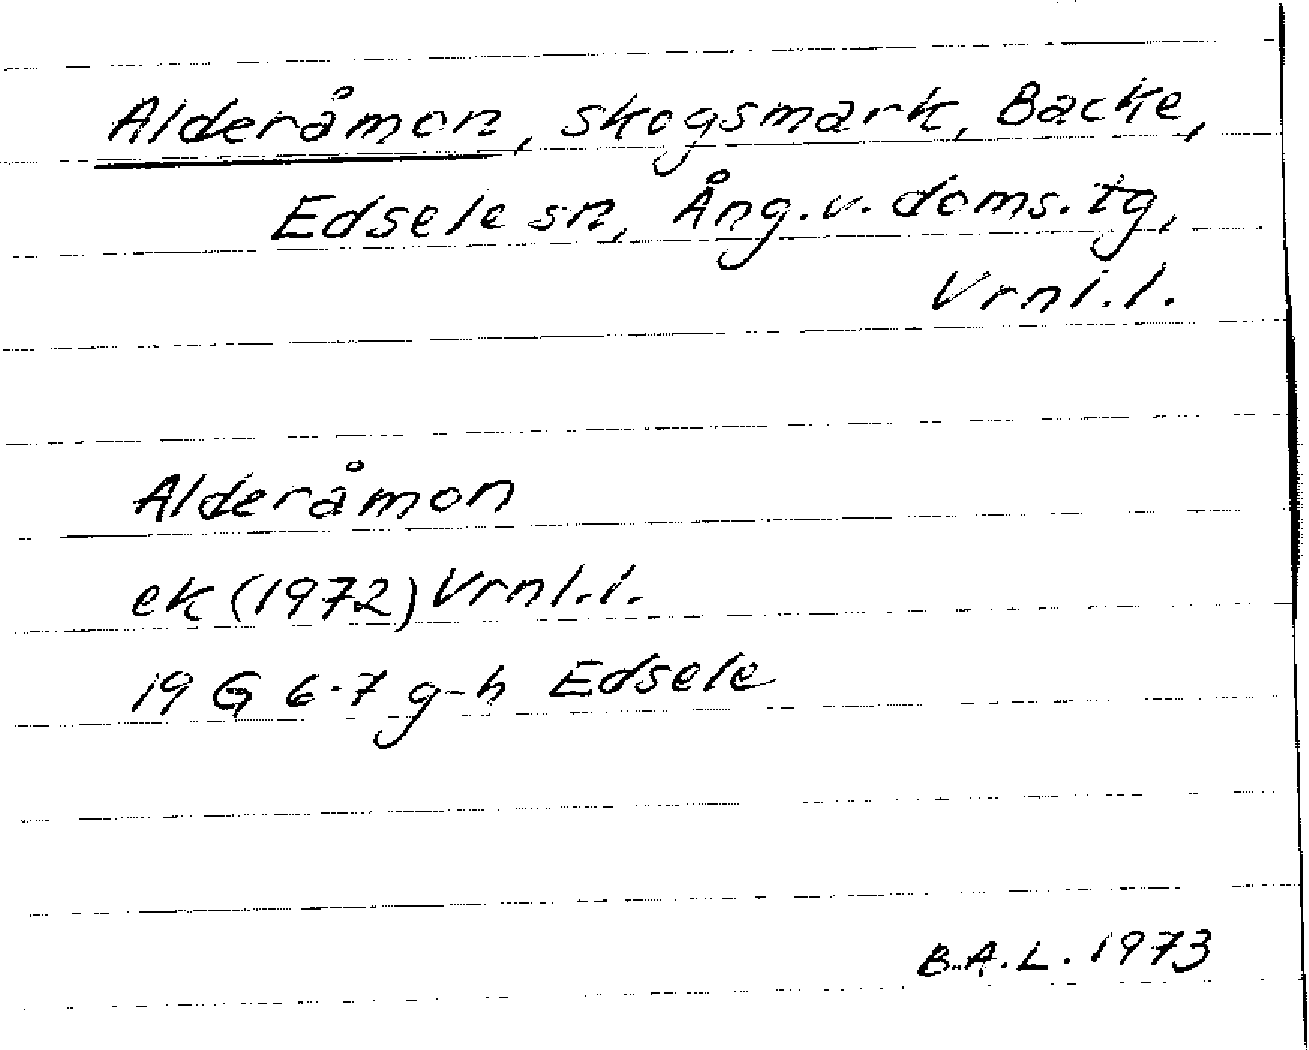 Alderåmon, skogsmark, Backe,
Edsele sn, Ång.v. doms. tg,
Vrnl.l.
Alderåmon
ek (1972) Vrnl.l.
19 G 6-7 g-h Edsele
B.A.L. 1973